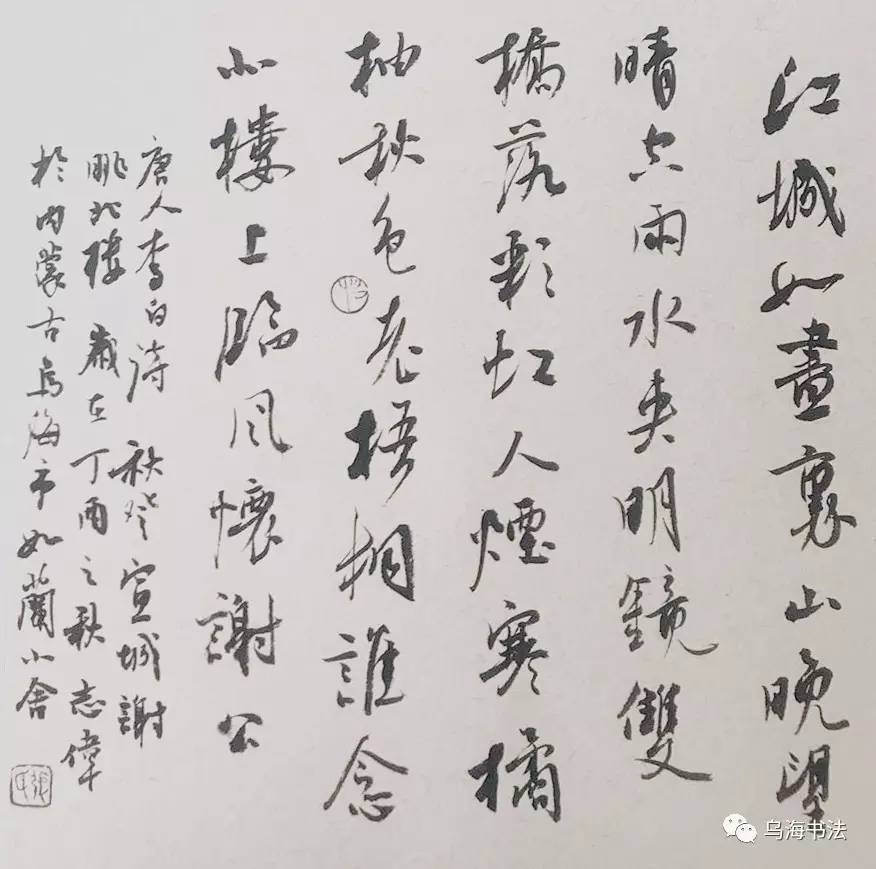 江城如畫裏山晚望
晴空雨水夾明鏡雙
橋落彩虹人煙寒橘
柚秋色老梧桐誰念
北樓上臨風懷謝公
唐人李白詩 秋登宣城謝
眺北樓 歲在丁酉之秋 志偉
於內蒙古烏海市如蘭小舍
乌海书法